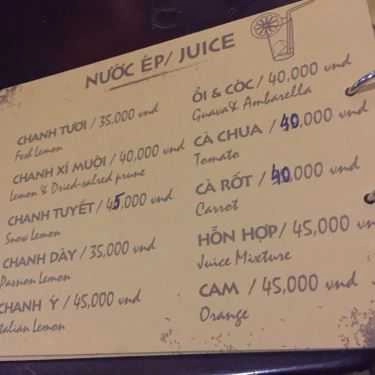 NƯỚC ÉP/ JUICE
CHANH TƯƠI / 35,000 vnd
Fed Lemon
CHANH XÍ MUỘI / 40,000 vnd
Lemon & Dried-salred prune
CHANH TUYẾT / 45,000 vnd
Snow Lemon
CHANH DÂY / 35,000 vnd
Passion Lemon
CHANH Ý / 45,000 vnd
Italian Lemon
ỔI & CÓC / 40,000 vnd
Guava & Ambarella
CÀ CHUA / 40,000 vnd
Tomato
CÀ RỐT / 40,000 vnd
Carrot
HỖN HỢP / 45,000 vnd
Juice Mixture
CAM / 45,000 vnd
Orange